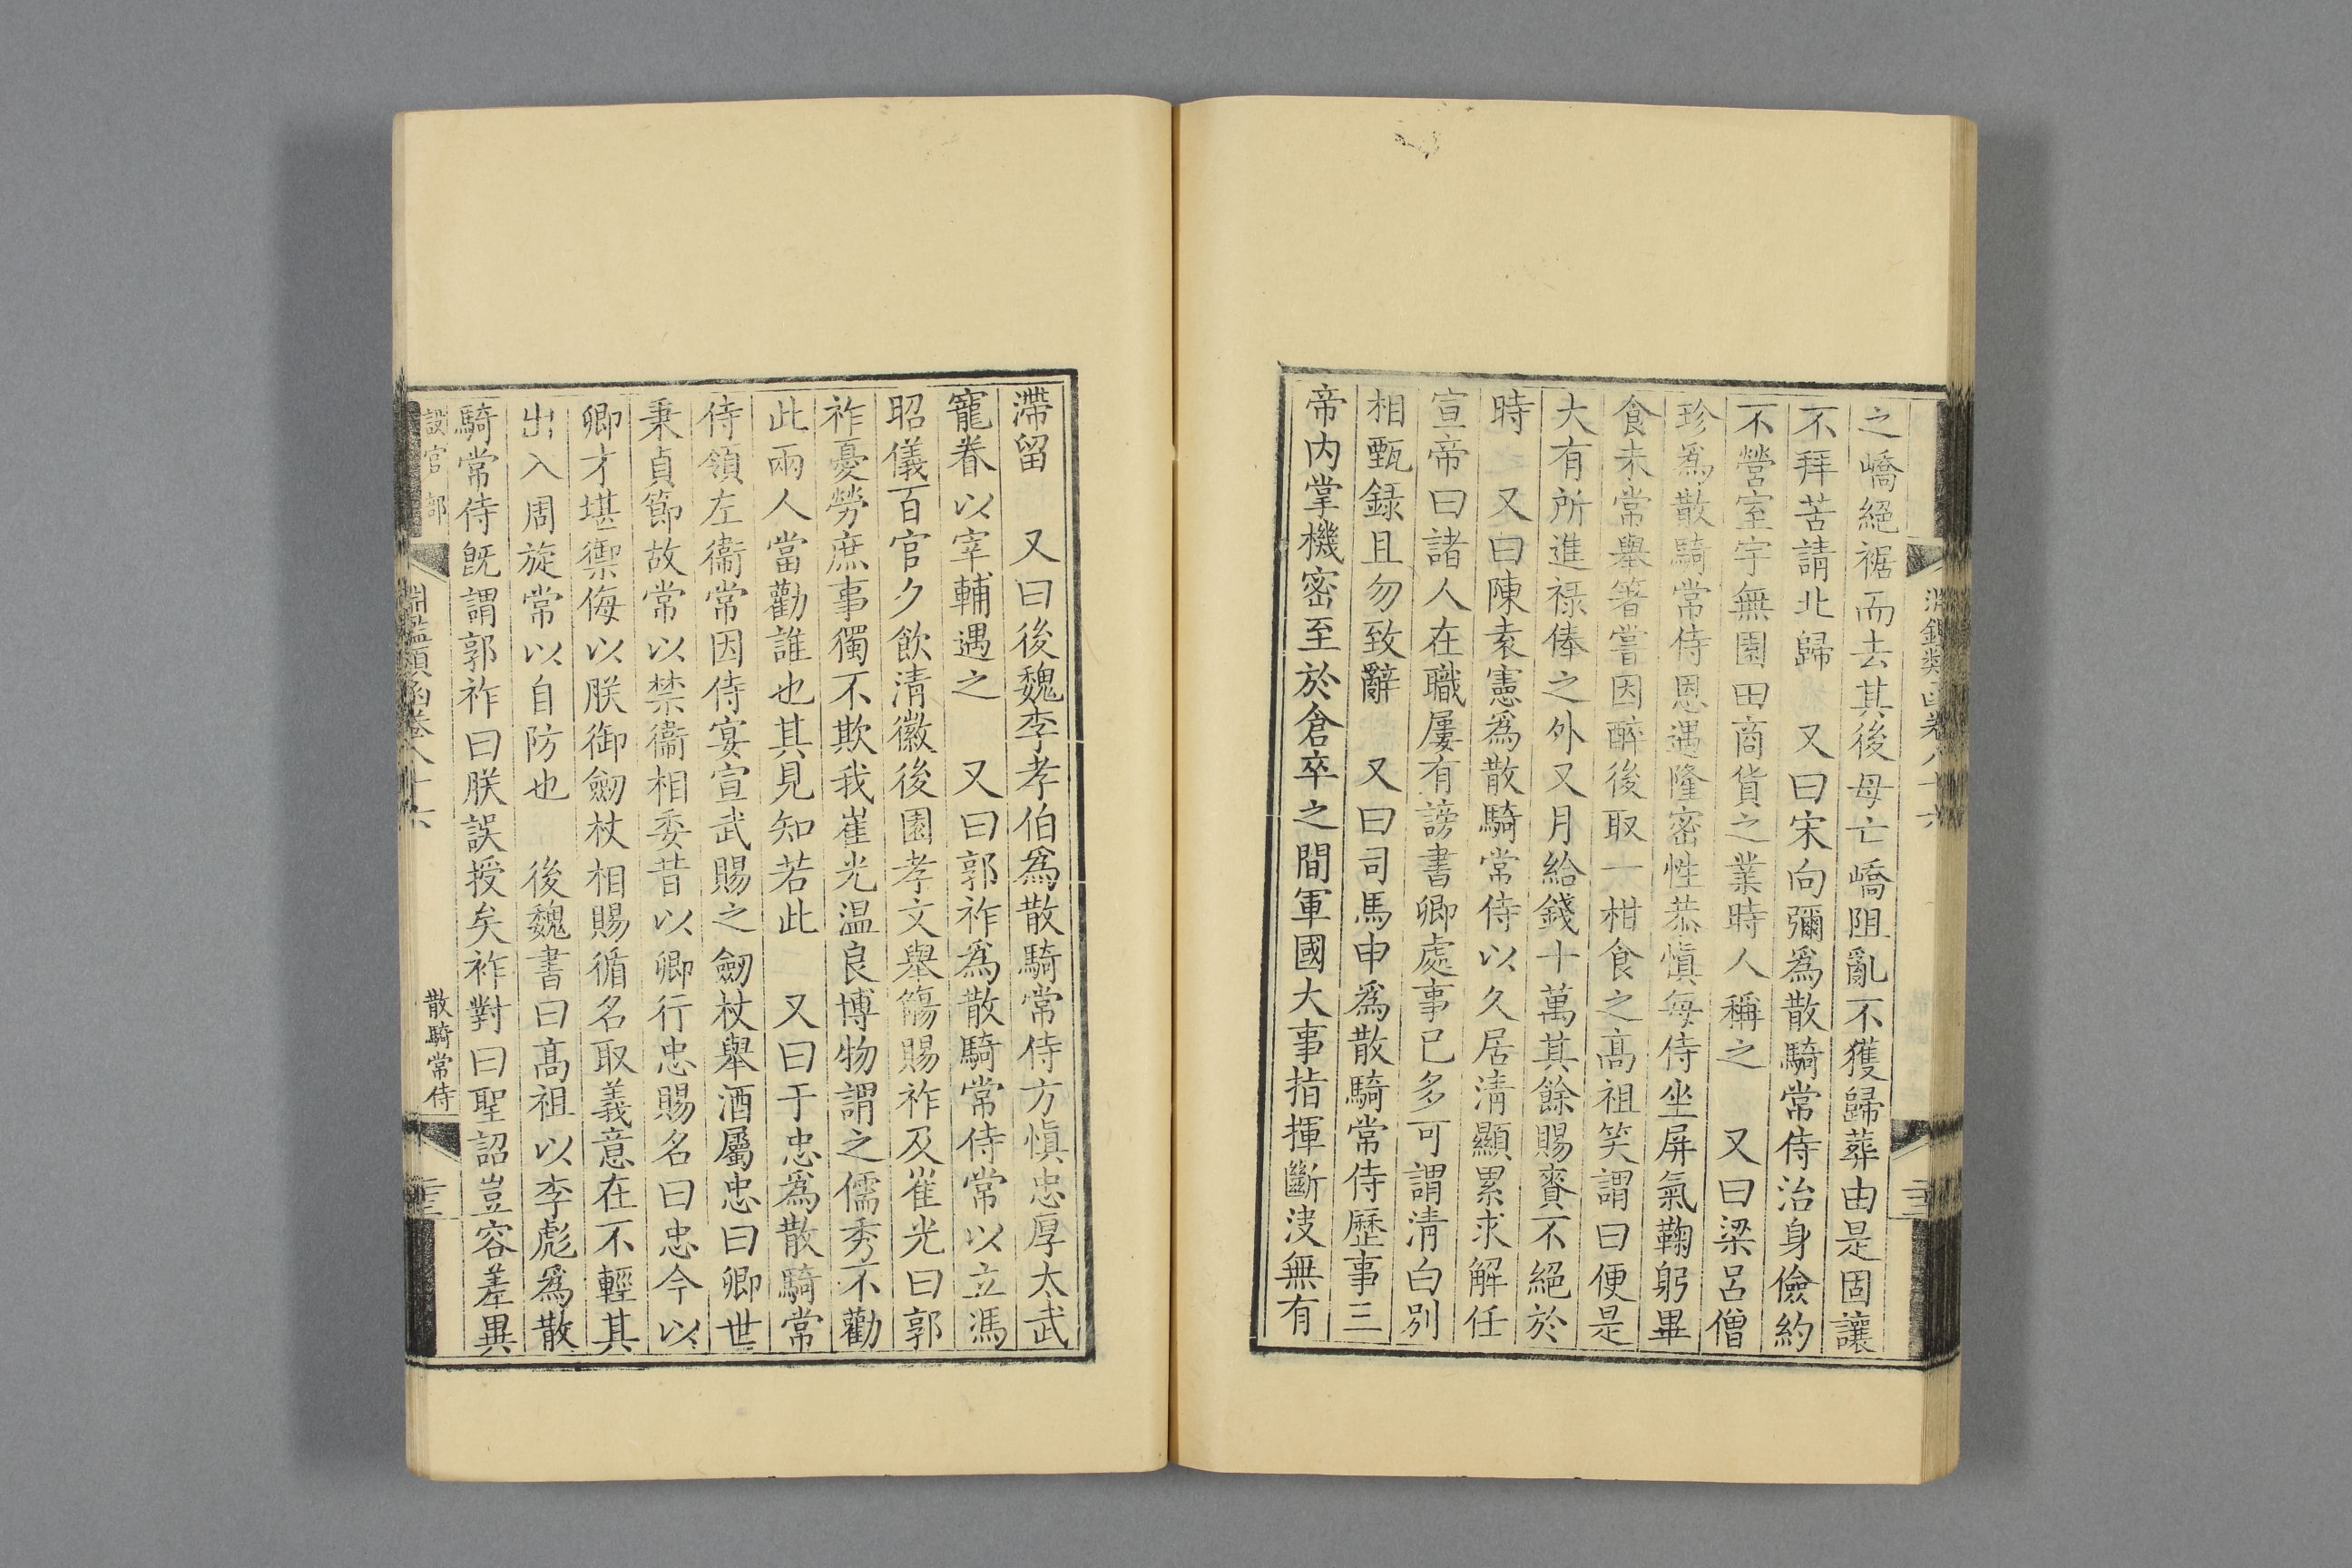 之嶠絕裾而去其後母亡嶠阻亂不獲歸葬由是固讓
不拜苦請北歸　又曰宋向彌爲散騎常侍治身儉約
不營室宇無園田商貨之業時人稱之　又曰梁呂僧
珍爲散騎常侍恩遇隆密性恭愼每侍坐屏氣鞠躬畢
食未常舉箸嘗因醉後取一柑食之高祖笑謂曰便是
大有所進祿俸之外又月給錢十萬其餘賜賚不絕於
時　又曰陳袁憲爲散騎常侍以久居淸顯累求解任
宣帝曰諸人在職屢有謗書卿處事已多可謂淸白別
相甄録且勿致辭　又曰司馬申爲散騎常侍歷事三
帝内掌機密至於倉卒之間軍國大事指揮斷決無有
滯留　又曰後魏李孝伯爲散騎常侍方愼忠厚太武
寵眷以宰輔遇之　又曰郭祚爲散騎常侍常以立馮
昭儀百官夕飲清徽後園孝文舉觴賜祚及崔光曰郭
祚憂勞庶事獨不欺我崔光温良博物謂之儒秀不勸
此兩人當勸誰也其見知若此　又曰于忠爲散騎常
侍領左衞常因侍宴宣武賜之劒杖舉酒屬忠曰卿世
秉貞節故常以禁衞相委昔以卿行忠賜名曰忠今以
卿才堪禦侮以朕御劒杖相賜循名取義意在不輕其
出入周旋常以自防也　後魏書曰高祖以李彪爲散
騎常侍旣謂郭祚曰朕誤授矣祚對曰聖詔豈容差異
設官部
淵鑑類函卷八十六
散騎常侍